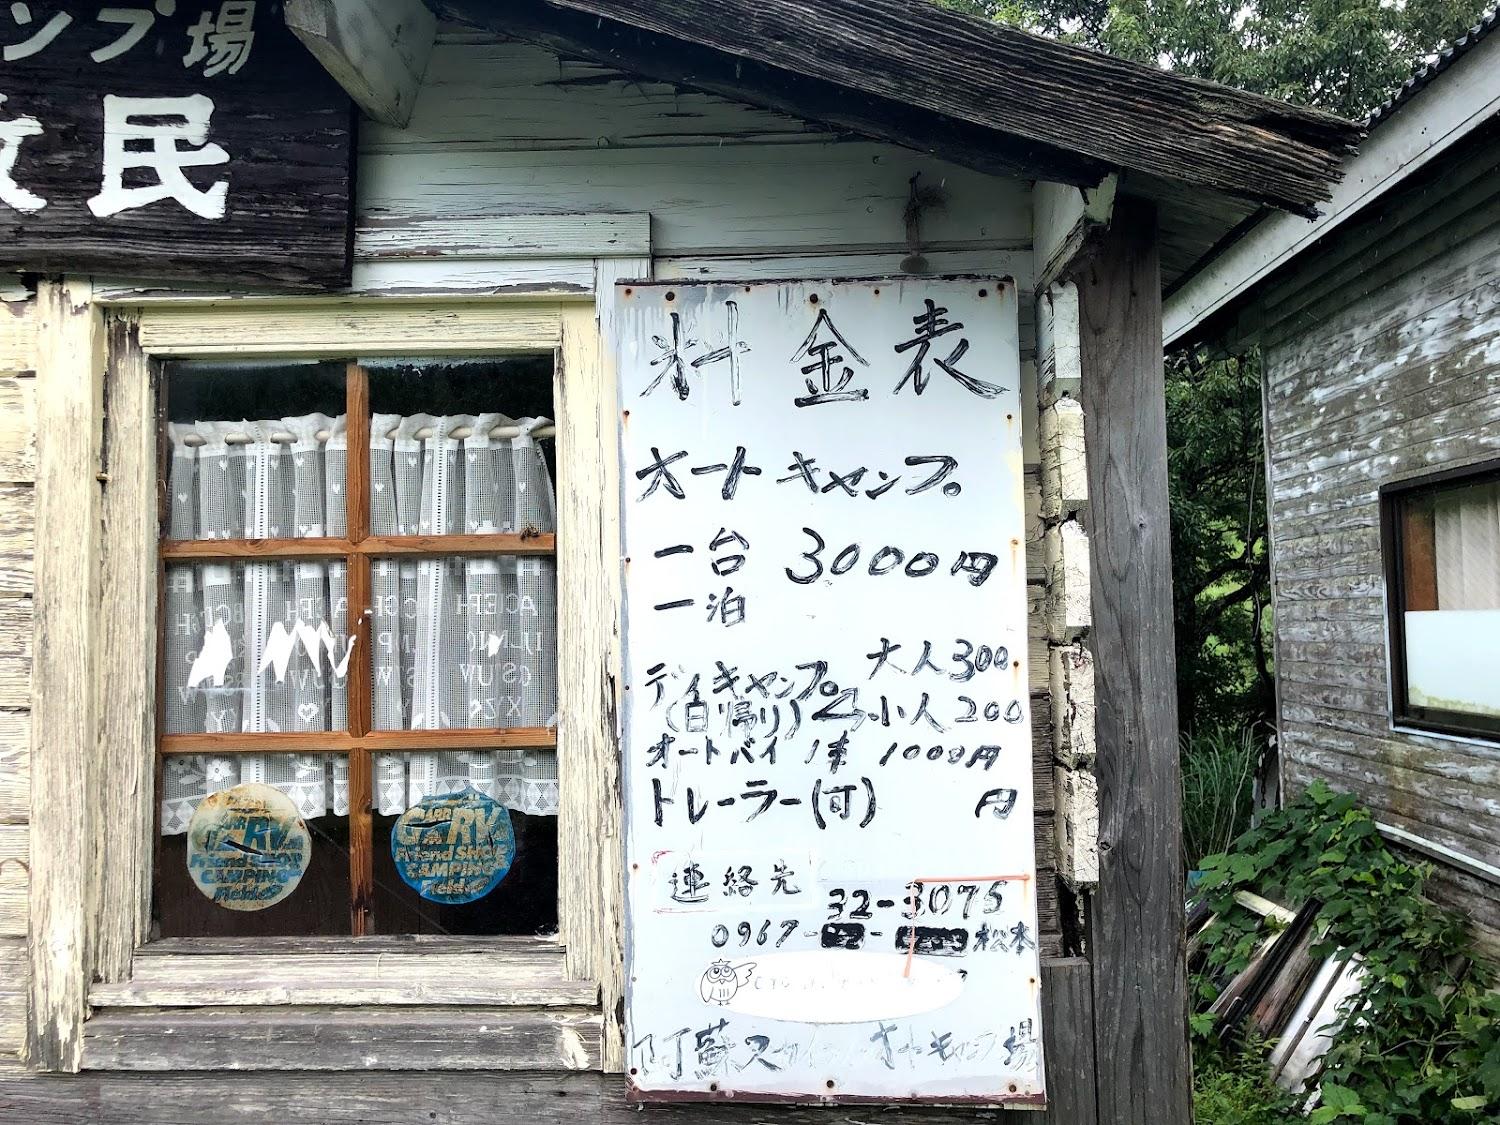 ンプ場
牧民
料金表
オートキャンプ
一台 3000円
一泊
デイキャンプ 大人300
(日帰り) 小人200
オートバイ 1車 1000円
トレーラー(可) 円
連絡先
32-3075
0967- - 松本
阿蘇 オートキャンプ場
CARVAN
Friend SHOP
CAMPING
Field
CARVAN
Friend SHOP
CAMPING
Field